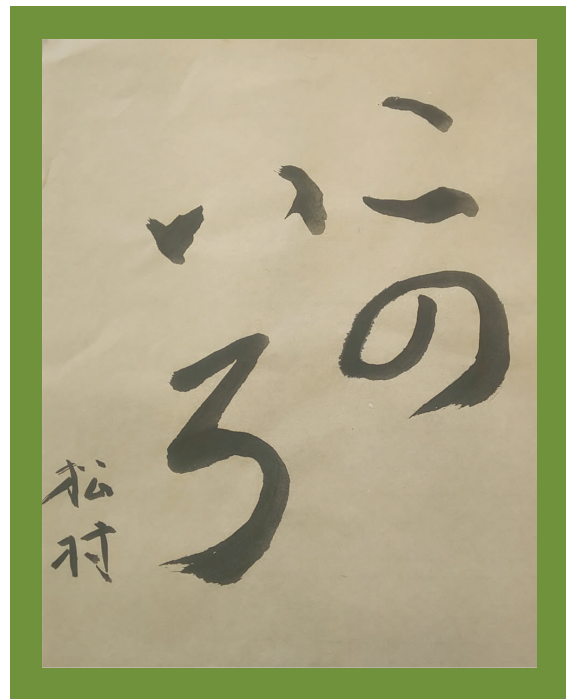 この
いろ
松村